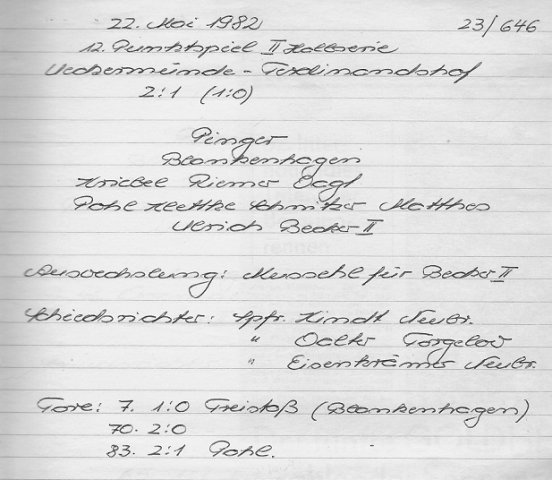 22. Mai 1982 23/646
12. Punktspiel II Halbserie
Ueckermünde - Ferdinandshof
2:1 (1:0)
Pinger
Blankenhagen
Kriebel Riemer Vagl
Pohl Klettke Schnitzer Matthes
Ulrich Becker II
Auswechslung: Mussehl für Becker II
Schiedsrichter: Spfr. Kindt Neubr.
" Torgelow
" Eisenkrämer Neubr.
Tore: 7. 1:0 Freistoß (Blankenhagen)
70. 2:0
83. 2:1 Pohl.